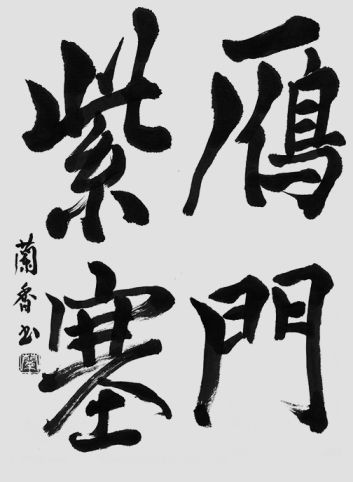 鴈門
紫塞
蘭香书